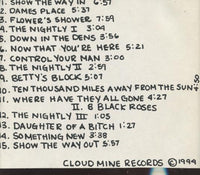 1. SHOW THE WAY IN 6:57
2. DAMES PLACE 5:37
3. FLOWER'S SHOWER 7:59
4. THE NIGHTLY I 3:09
5. DOWN IN THE DENS 3:56
6. NOW THAT YOU'RE HERE 5:21
7. CONTROL YOUR MAN 3:00
8. THE NIGHTLY II 2:59
9. BETTY'S BLOCK 5:07
10. TEN THOUSAND MILES AWAY FROM THE SUN 4:50
11. WHERE HAVE THEY ALL GONE 4:27
II. 8 BLACK ROSES
12. THE NIGHTLY III 1:05
13. DAUGHTER OF A BITCH 1:27
14. SOMETHING NEW 3:38
15. SHOW THE WAY OUT 5:57
CLOUD MINE RECORDS © 1999